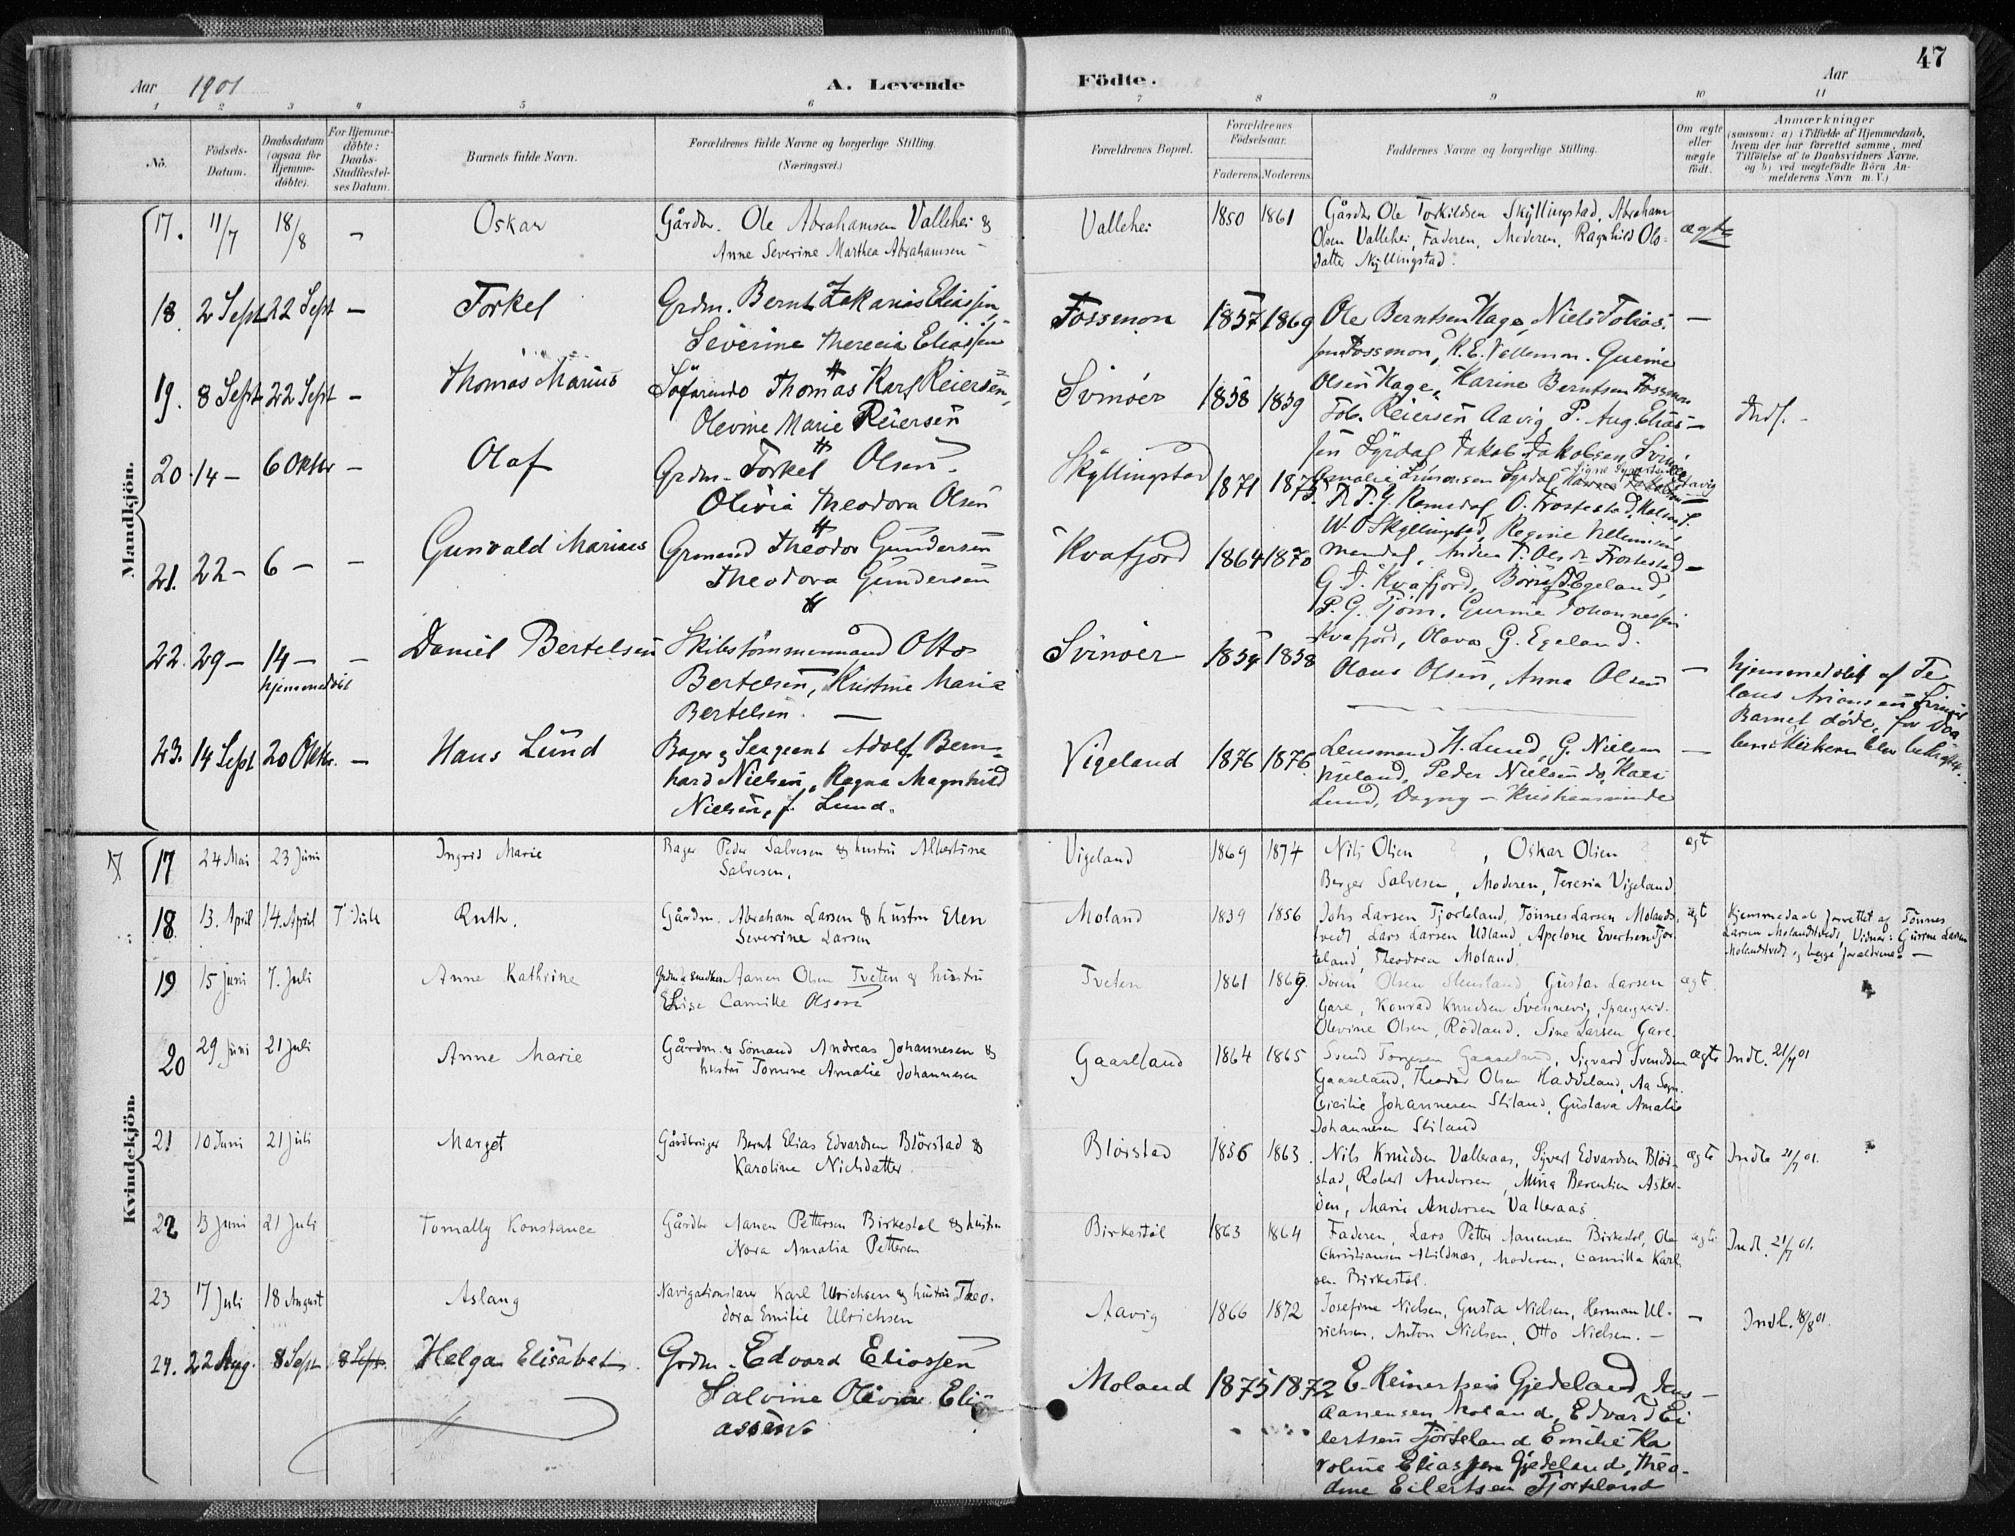 47
Aar 1901
A. Levende
Födte.
Aar
1 2 3 4 5 6 7 8 9 10 11
No.
Födsels-Datum.
Daabsdatum (ogsaa for Hjemmedöbte).
For Hjemmedöbte: Daabs-Stadfæstelses Datum.
Barnets fulde Navn.
Forældrenes fulde Navne og borgerlige Stilling.
(Næringsvei.)
Forældrenes Bopæl.
Forældrenes Födselsaar.
Faderens. Moderens.
Faddernes Navne og borgerlige Stilling.
Om ægte eller uægte født.
Anmærkninger
(saasom: a) i Tilfælde af Hjemmedaab, hvem der har forrettet samme, med Tilföielse af to Daabsvidners Navne, og b) ved uægtefödte Börn Anmelderens Navn m. V.)
Mandkjön.
17. 11/7 18/8 - Oskar
Gårdbr. Ole Abrahamsen Vallehei &
Anne Severine Marthea Abrahamsen
Vallehei 1850 1861
Gårdbr Ole Torkildsen Skyllingstad, Abraham
Olsen Vallehei, Faderen, Moderen, Ragnhild Ols-
datter Skyllingstad.
ægte
18. 2 Sept 22 Sept - Torkel
Grdm. Bernt Zakarias Eliassen,
Severine Therecia Eliassen
Fossmon 1857 1869
Ole Berntsen Hage, Niels Tobias-
sen Fossmon, K. E. Vellemon. Gurine
Olsen Hage, Karine Berntsen Fossmon
-
19. 8 Sept 22 Sept - Thomas Marius
Söfarende Thomas Karl Reiersen,
Olevine Marie Reiersen
Svinöer 1858 1859
Tob. Reiersen Aavig, P. Aug. Elias-
sen Syrdal Jakob Jakobsen, Svinöer
Amalie Simonsen Syrdal
Indl. -
20. 14 - 6 Oktbr - Olaf
Grdm. Torkel Olsen.
Olivia Theodora Olsen
Skyllingstad 1871 1875
P. G. Romedal, O. Frostestad,
W. O Skyllingstad, Regine Vellemon
Mandal, Andrea T. Frostestad
21. 22 - 6 - - Gunvald Marius
Grmand Theodor Gundersen
Theodora Gundersen
Kvafjord 1864 1870
G. J. Kvafjord, Egeland,
P. G. Tjöm, Gurine Johannessen
Kvafjord, Olava G. Egeland.
-
22. 29 - 14 - - Daniel Bertelsen
hjemmedöbt
Skibstömmermand Otto
Bertelsen, Kristine Marie
Bertelsen. -
Svinöer 1854 1858
Olaus Olsen, Anna Olsen
-
hjemmedöbt af Te
laus Svinöer
Barnet döde, för Daa
ben i Kirken blev bekræftet.
23. 14 Sept 20 Oktbr. - Hans Lund
Bager & Sergeant Adolf Bern-
hard Nielsen, Ragna Magnhild
Nielsen, f. Lund.
Vigeland 1876 1876
Lensmand H. Lund, G. Nielsen
Vigeland, Peder Nielsen do, Kari
Lund, Dagny - Kristiansminde
-
Kvindekjön.
17 24 Mai 23 Juni Ingrid Marie
Bager Peder Salvesen & hustru Albertine
Salvesen.
Vigeland 1869 1874
Nils Olsen, Oskar Olsen
Berger Salvesen, Moderen, Teresia Vigeland
ægt
18. 13. April 14. April 7 Juli Ruth.
Gårdm. Abraham Larsen & hustru Elen
Severine Larsen
Moland 1859 1856
Johs Larsen Fjorteland, Tönnes Larsen Molands-
tvedt, Lars Larsen Udland, Apelone Evertsen Fjor-
teland, Theodora Moland.
ægt
Hjemmedaab forrettet af Tönnes
Larsen Molandstvedt, Vidner: Gurine Larsen
Molandstvedt og begge forældrene. -
19 15 Juni 7. Juli Anne Kathrine
Aanen Olsen Tveten & hustru
Elise Camille Olsen
Tveten 1861 1869.
Sören Olsen Stensland, Gustav Larsen
Gare, Konrad Knudsen Svennevig, Spangereid.
Olevine Olsen, Rödland. Sine Larsen Gare.
ægt.
20 29 Juni 21 Juli Anne Marie
Gårdm. & Sömand Andreas Johannesen &
hustru Tomine Amalie Johannesen
Gaaseland 1864 1865
Svend Torgersen Gaaseland, Sigvard Svendsen
Gaaseland, Theodor Olsen Haddeland, Aa Sogn.
Cicilie Johannesen Stiland, Gustava Amalie
Johannesen Stiland
ægte Indl. 21/7 01
21 10 Juni 21 Juli Margot
Gårdbruger Bernt Elias Edvardsen Blörstad &
Karoline Nielsdatter.
Blörstad 1856 1863.
Nils Knudsen Valleraas, Syvert Edvardsen Blör-
stad, Robert Andersen, Mina Berentien Asker-
öen, Marie Andersen Valleraas
ægte Indl. 21/7 01.
22 13 Juni 21 Juli Tomally Konstance
Gårdbr Aanen Pettersen Birkestöl & hustru
Nora Amalia Pettersen
Birkestöl 1863 1864
Faderen, Lars Petter Aanensen Birkestöl, Ola
Christiansen Skildnæs, Moderen, Camilla Karl
sen Birkestöl.
ægte Indl. 21/7 01.
23 17 Juli 18 August Aslaug
Navigationslærer Karl Ulrichsen & hustru Theo-
dora Emilie Ulrichsen
Aavig 1866 1872
Josefine Nielsen, Gusta Nielsen, Herman Ul-
richsen, Anton Nielsen, Otto Nielsen. -
- Indl. 18/8 01.
24. 22 Aug. 8 Sept 8 Sept. Helga Elisabet.
Grdm. Edvard Eliassen
Salvine Olivia Eli-
assen.
Moland 1875 1872
E. Reinertsen Gjedeland, Jens
Aanensen Moland, Edvard Ei
lertsen Fjorteland Emilie Ka
roline Eliassen Gjedeland, Theo-
dine Eilertsen Fjorteland
-